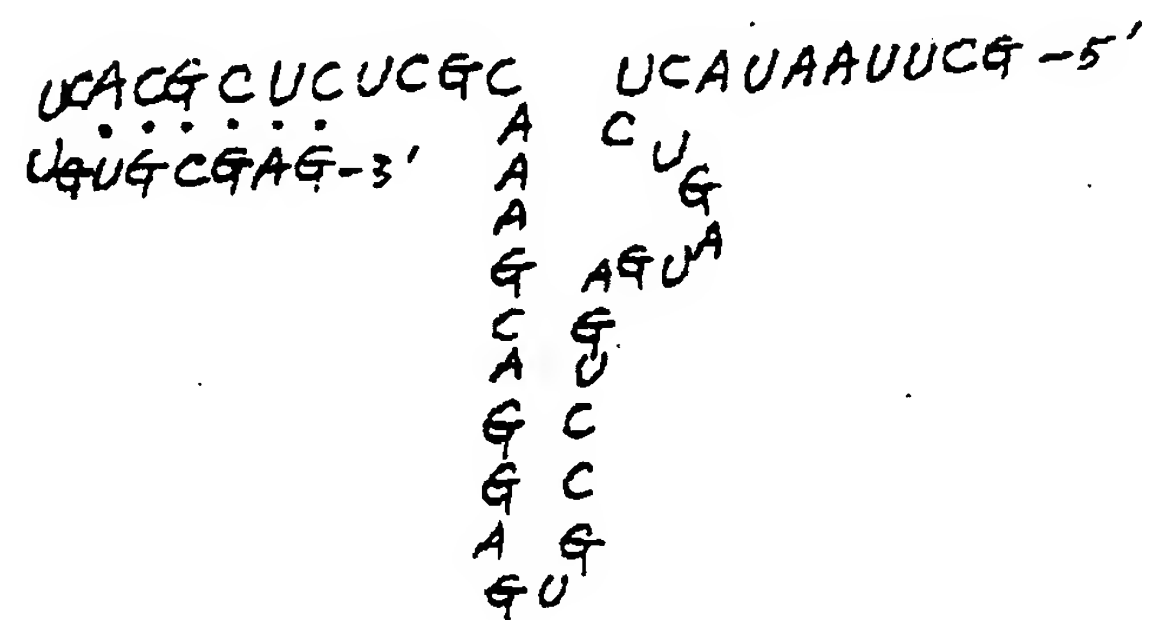 UCACGCUCUCGC UCAUAAUUCG-5'
A C
U
UGUGCGAG-3' A G
A A
G AGU
C G
A U
G C
G C
A G
GU